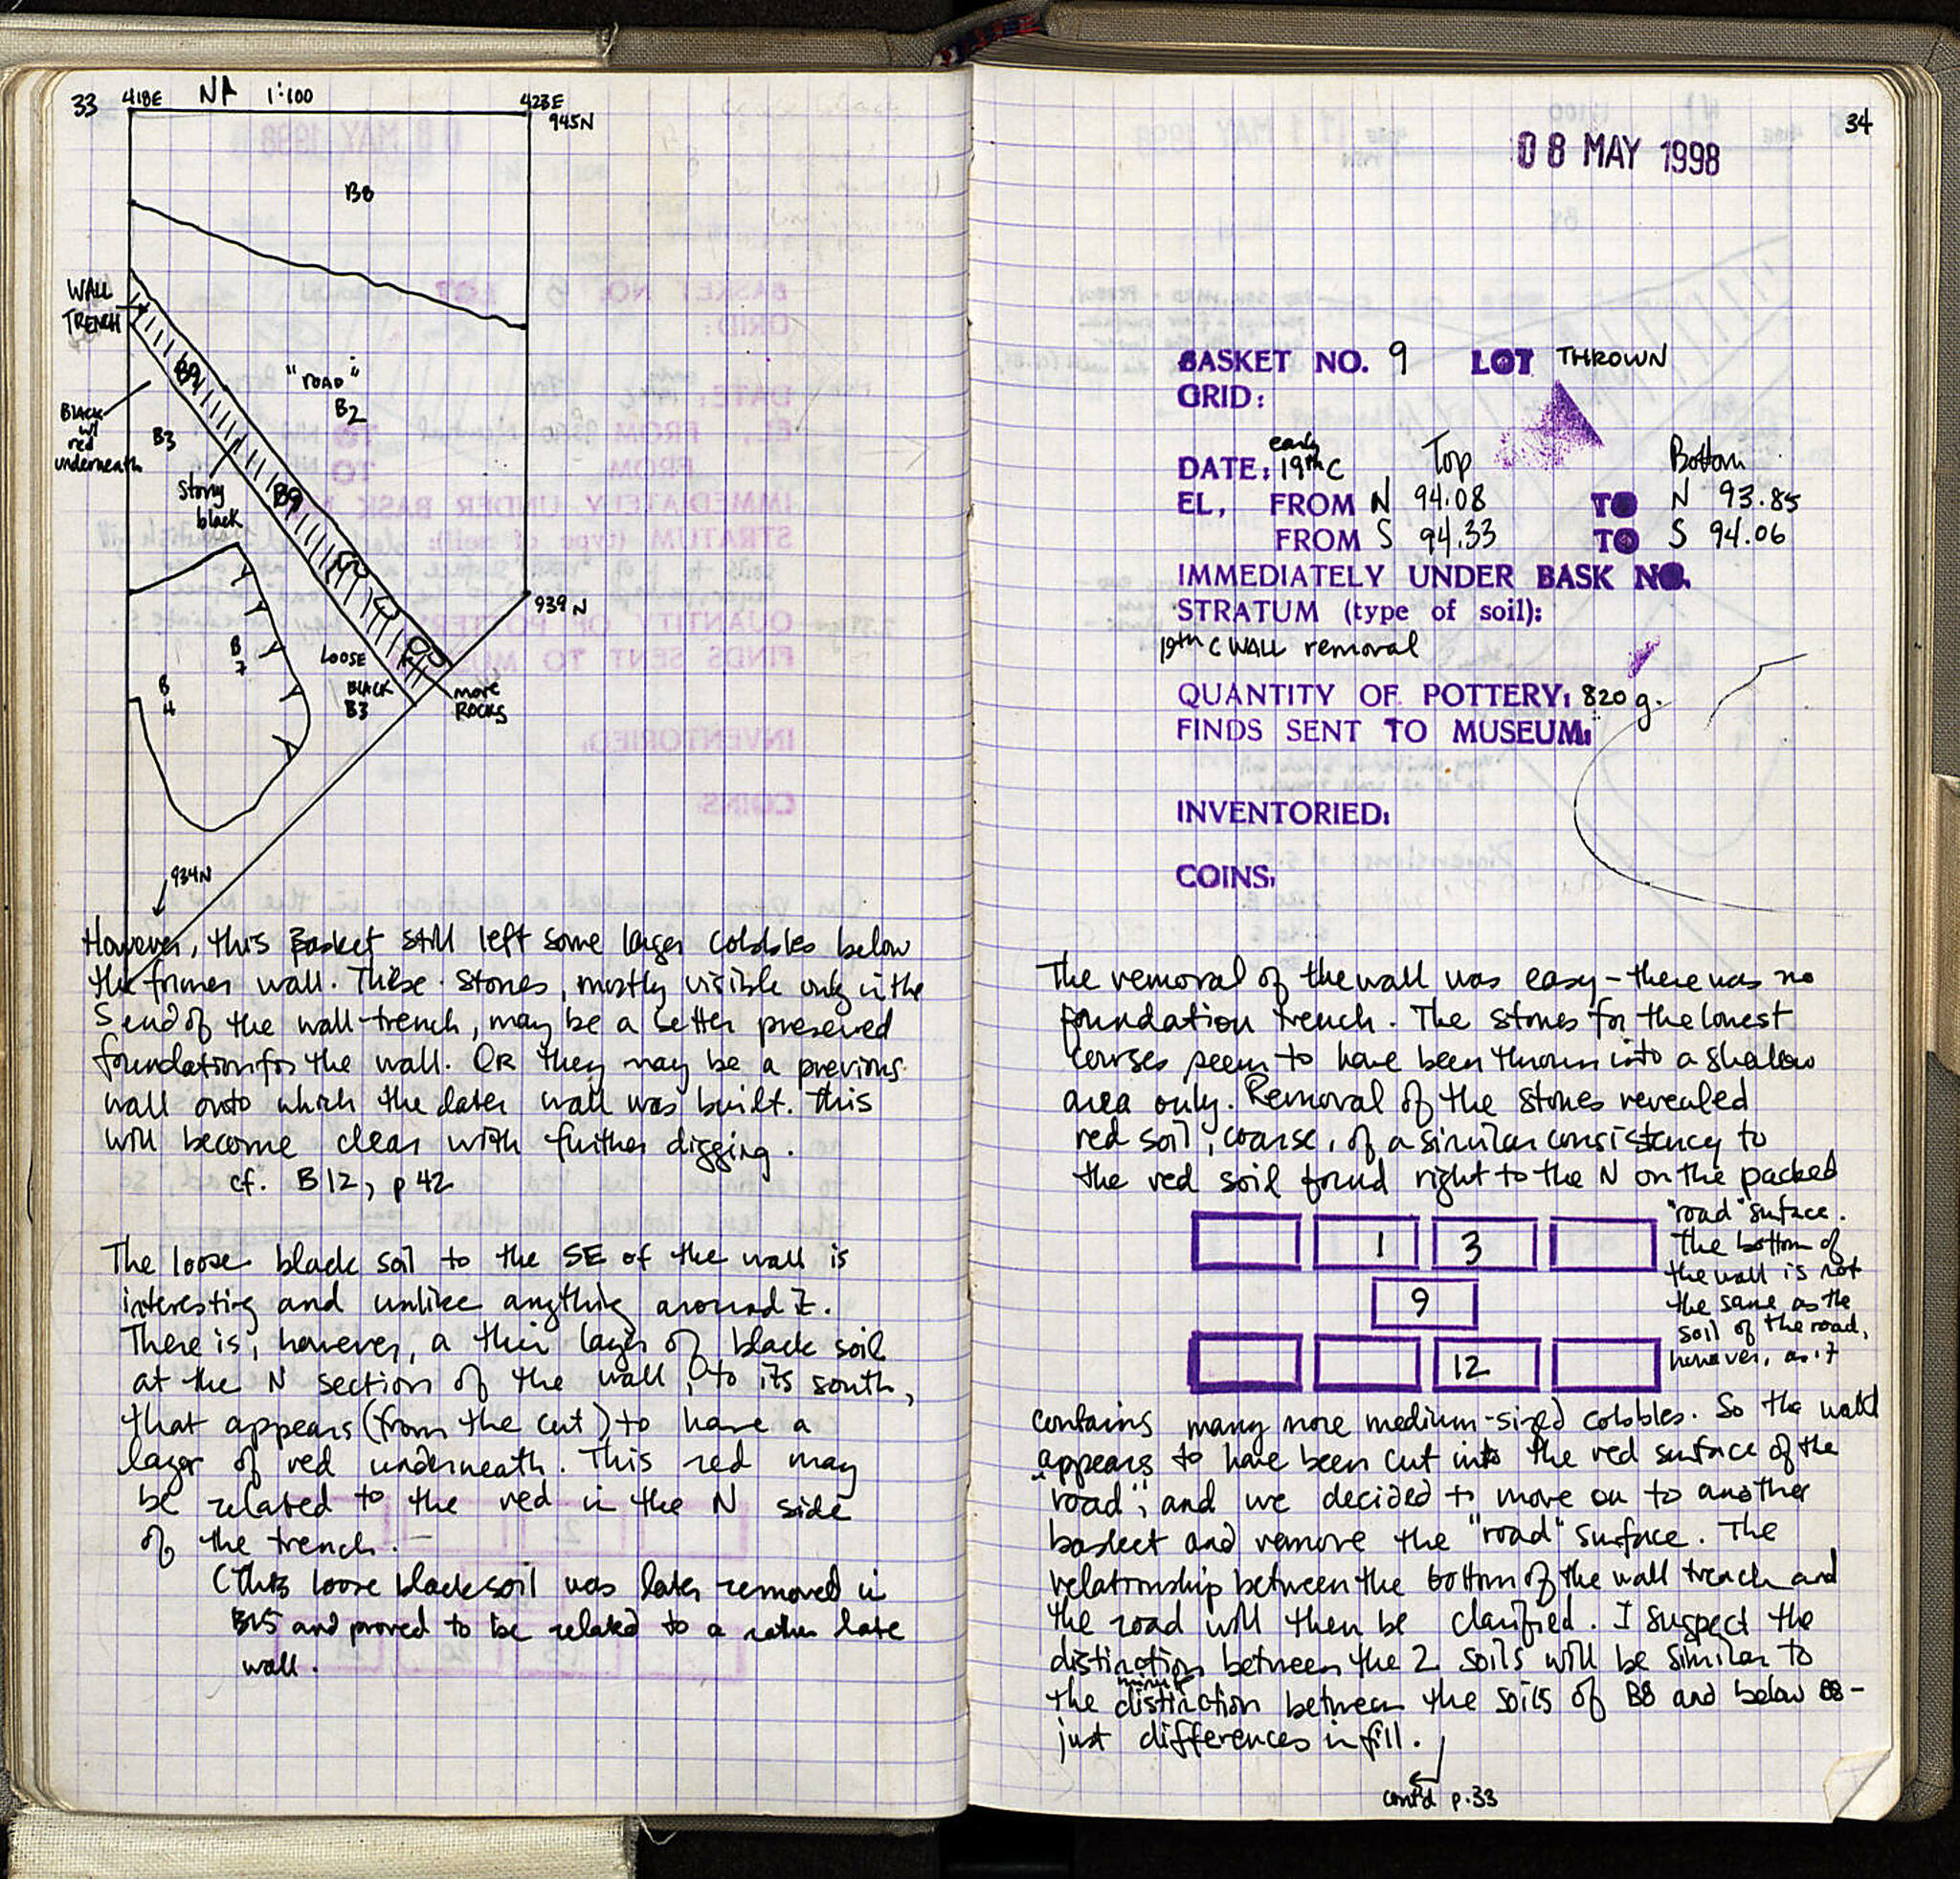 33 418E N↑ 1:100 423E
945N
B8
WALL
TRENCH
B9
"ROAD"
B2
BLACK
w/
red
underneath
B3
stony
black
B9
939N
B
7
LOOSE
BLACK
B3
more
ROCKS
B
4
934N
However, this Basket still left some larger cobbles below
the former wall. These stones, mostly visible only in the
S end of the wall-trench, may be a better preserved
foundation for the wall. OR they may be a previous
wall onto which the later wall was built. This
will become clear with further digging.
cf. B12, p 42
The loose black soil to the SE of the wall is
interesting and unlike anything around it.
There is, however, a thin layer of black soil
at the N section of the wall, to its south,
that appears (from the cut) to have a
layer of red underneath. This red may
be related to the red in the N side
of the trench.
(This loose black soil was later removed in
B15 and proved to be related to a rather late
wall.
34
08 MAY 1998
BASKET NO. 9 LOT THROWN
GRID:
early
DATE: 19th C Top Bottom
EL, FROM N 94.08 TO N 93.85
FROM S 94.33 TO S 94.06
IMMEDIATELY UNDER BASK NO.
STRATUM (type of soil):
19th C WALL removal
QUANTITY OF POTTERY: 820 g.
FINDS SENT TO MUSEUM:
INVENTORIED:
COINS:
The removal of the wall was easy – there was no
foundation trench. The stones for the lowest
courses seem to have been thrown into a shallow
area only. Removal of the stones revealed
red soil, coarse, of a similar consistency to
the red soil found right to the N on the packed
"road" surface.
The bottom of
the wall is not
the same as the
soil of the road,
however, as it
1 3
9
12
contains many more medium-sized cobbles. So the wall
appears to have been cut into the red surface of the
"road", and we decided to move on to another
basket and remove the "road" surface. The
relationship between the bottom of the wall trench and
the road will then be clarified. I suspect the
distinction between the 2 soils will be similar to
minor
the distinction between the soils of B8 and below B8 –
just differences in fill.
cont'd p.33